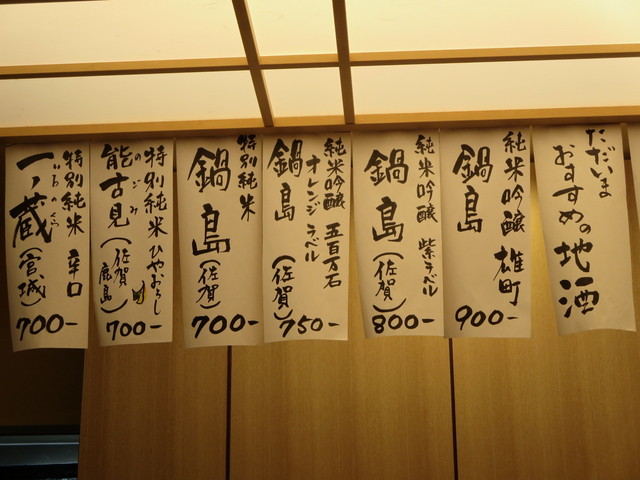 ただいま
おすすめの地酒
純米吟醸 雄町
鍋島
900-
純米吟醸 紫ラベル
鍋島(佐賀)
800-
純米吟醸 五百万石
オレンジラベル
鍋島(佐賀)
750-
特別純米
鍋島(佐賀)
700-
特別純米 ひやおろし
のごみ
能古見(佐賀 鹿島)
700-
特別純米 辛口
いちのくら
一ノ蔵(宮城)
700-